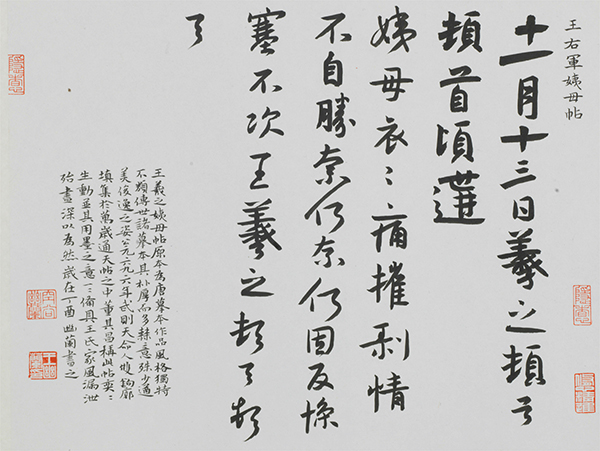 王右軍姨母帖
十一月十三日羲之頓首
頓首頃遘
姨母哀〻痛摧剥情
不自勝奈何奈何因反慘
塞不次王羲之頓首頓
首
王羲之姨母帖原本為唐摹本作品風格獨特
不類傳世諸摹本具朴厚而多隸意殊少遒
美俊逸之姿公元六九六年武則天命人雙鉤廓
填集於萬歲通天帖之中董其昌稱此帖奕〻
生動並具用墨之意〻備具王氏家風漏泄
殆盡深以為然歲在丁酉幽蘭書之